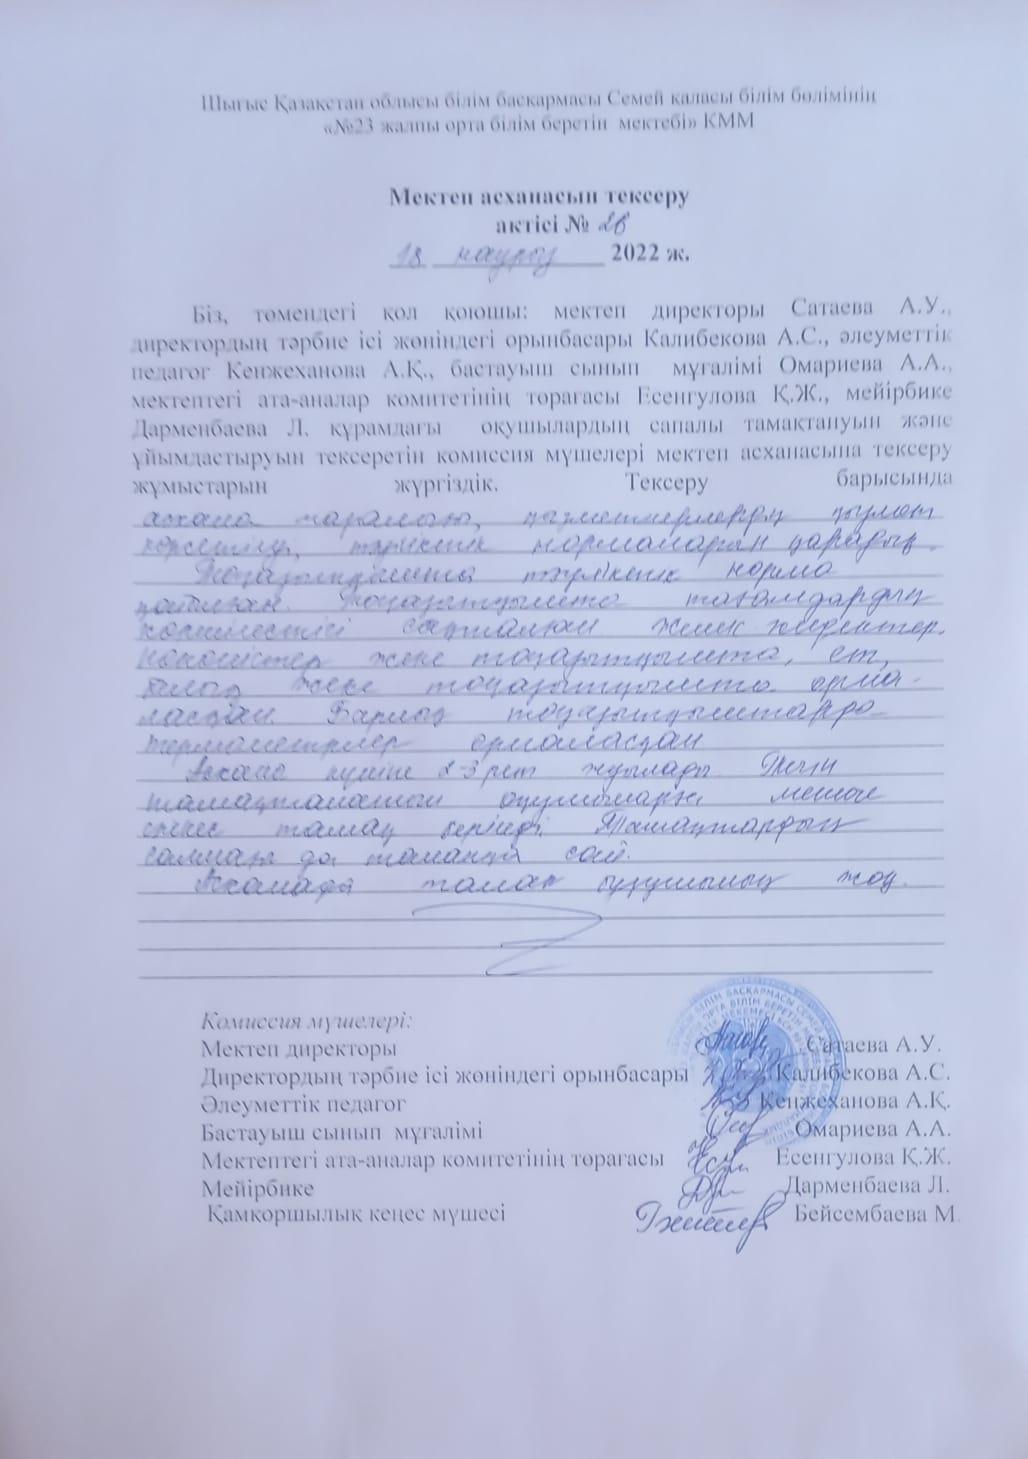 Шығыс Қазақстан облысы білім басқармасы Семей қаласы білім бөлімінің
«№23 жалпы орта білім беретін мектебі» КММ
Мектеп асханасын тексеру
актісі № 26
18 наурыз 2022 ж.
Біз, төмендегі қол қоюшы: мектеп директоры Сатаева А.У.,
директордың тәрбие ісі жөніндегі орынбасары Калибекова А.С., әлеуметтік
педагог Кенжеханова А.Қ., бастауыш сынып мұғалімі Омариева А.А.,
мектептегі ата-аналар комитетінің төрағасы Есенгулова Қ.Ж., мейірбике
Дарменбаева Л. құрамдағы оқушылардың сапалы тамақтануын және
ұйымдастыруын тексеретін комиссия мүшелері мектеп асханасына тексеру
жұмыстарын жүргіздік. Тексеру барысында
асхана тазалығы, қызметкерлердің қызмет
көрсетілуі, нормаларын қарадық.
Тоңазытқышта тәуліктік норма
қойылған. Тоңазытқышта тағамдардың
көршілестігі сақталған жеміс жидектер,
көкөністер жеке тоңазытқышта, ет,
балық жеке тоңазытқышта орна-
ласқан. Барлық тоңазытқыштарда
термометрлер орналасқан
Асхана күніне 2-3 рет жуылады. Тегін
тамақтанатын оқушыларға менюге
сәйкес тамақ беріледі. Тамақтардың
салмағы да талапқа сай.
Асханада талап бұзушылық жоқ.
Комиссия мүшелері:
Мектеп директоры Сатаева А.У.
Директордың тәрбие ісі жөніндегі орынбасары Калибекова А.С.
Әлеуметтік педагог Кенжеханова А.Қ.
Бастауыш сынып мұғалімі Омариева А.А.
Мектептегі ата-аналар комитетінің төрағасы Есенгулова Қ.Ж.
Мейірбике Дарменбаева Л.
Қамқоршылық кеңес мүшесі Бейсембаева М.